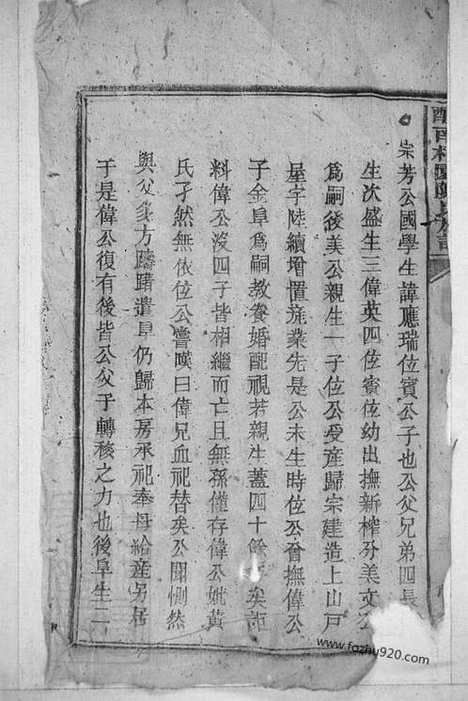 宗芳公國學生諱應瑞位賓公子也公父兄弟四長
生次盛生三偉英四位賓位幼出撫新榨芬美文公
爲嗣後美公親生一子位公受産歸宗建造上山戸
屋宇陸續增置產業先是公未生時位公曾撫偉公
子金阜爲嗣教養婚配視若親生蓋四十餘矣詎
料偉公沒四子皆相繼而亡且無孫僅存偉公妣黃
氏孑然無依位公嘗嘆曰偉兄血祀替矣公聞惻然
與父多方躊躇遣阜仍歸本房承祀奉母給産另居
于是偉公復有後皆公父于轉移之力也後阜生二
www.fozhu920.com